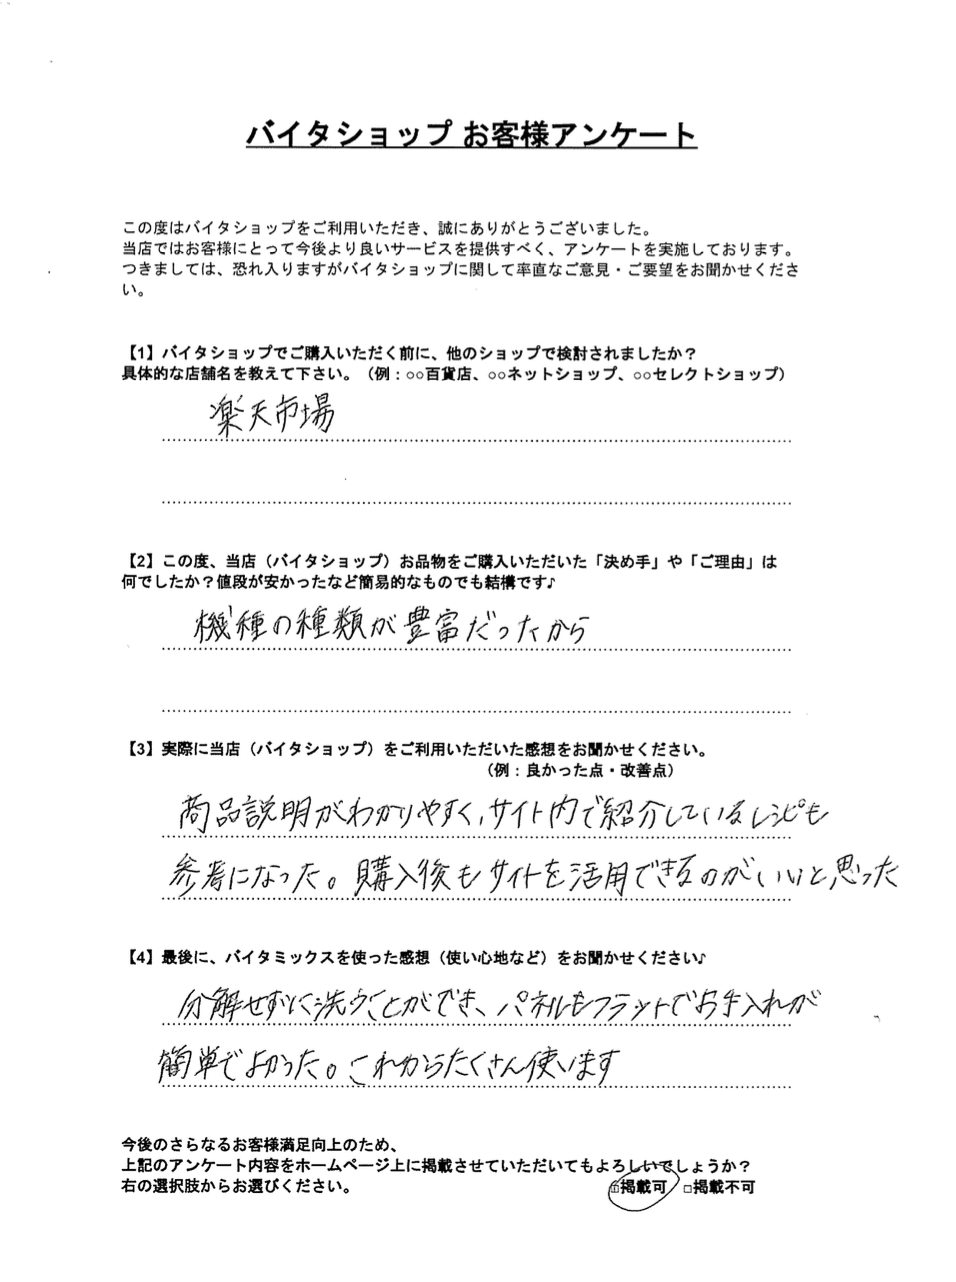 バイタショップ お客様アンケート
この度はバイタショップをご利用いただき、誠にありがとうございました。
当店ではお客様にとって今後より良いサービスを提供すべく、アンケートを実施しております。
つきましては、恐れ入りますがバイタショップに関して率直なご意見・ご要望をお聞かせくださ
い。
【1】バイタショップでご購入いただく前に、他のショップで検討されましたか？
具体的な店舗名を教えて下さい。（例：○○百貨店、○○ネットショップ、○○セレクトショップ）
楽天市場
【2】この度、当店（バイタショップ）お品物をご購入いただいた「決め手」や「ご理由」は
何でしたか？値段が安かったなど簡易的なものでも結構です♪
機種の種類が豊富だったから
【3】実際に当店（バイタショップ）をご利用いただいた感想をお聞かせください。
（例：良かった点・改善点）
商品説明がわかりやすく、サイト内で紹介しているレシピも
参考になった。購入後もサイトを活用できるのがいいと思った
【4】最後に、バイタミックスを使った感想（使い心地など）をお聞かせください♪
分解せずに洗うことができ、パネルもフラットでお手入れが
簡単でよかった。これからたくさん使います
今後のさらなるお客様満足向上のため、
上記のアンケート内容をホームページ上に掲載させていただいてもよろしいでしょうか？
右の選択肢からお選びください。 □掲載可 □掲載不可